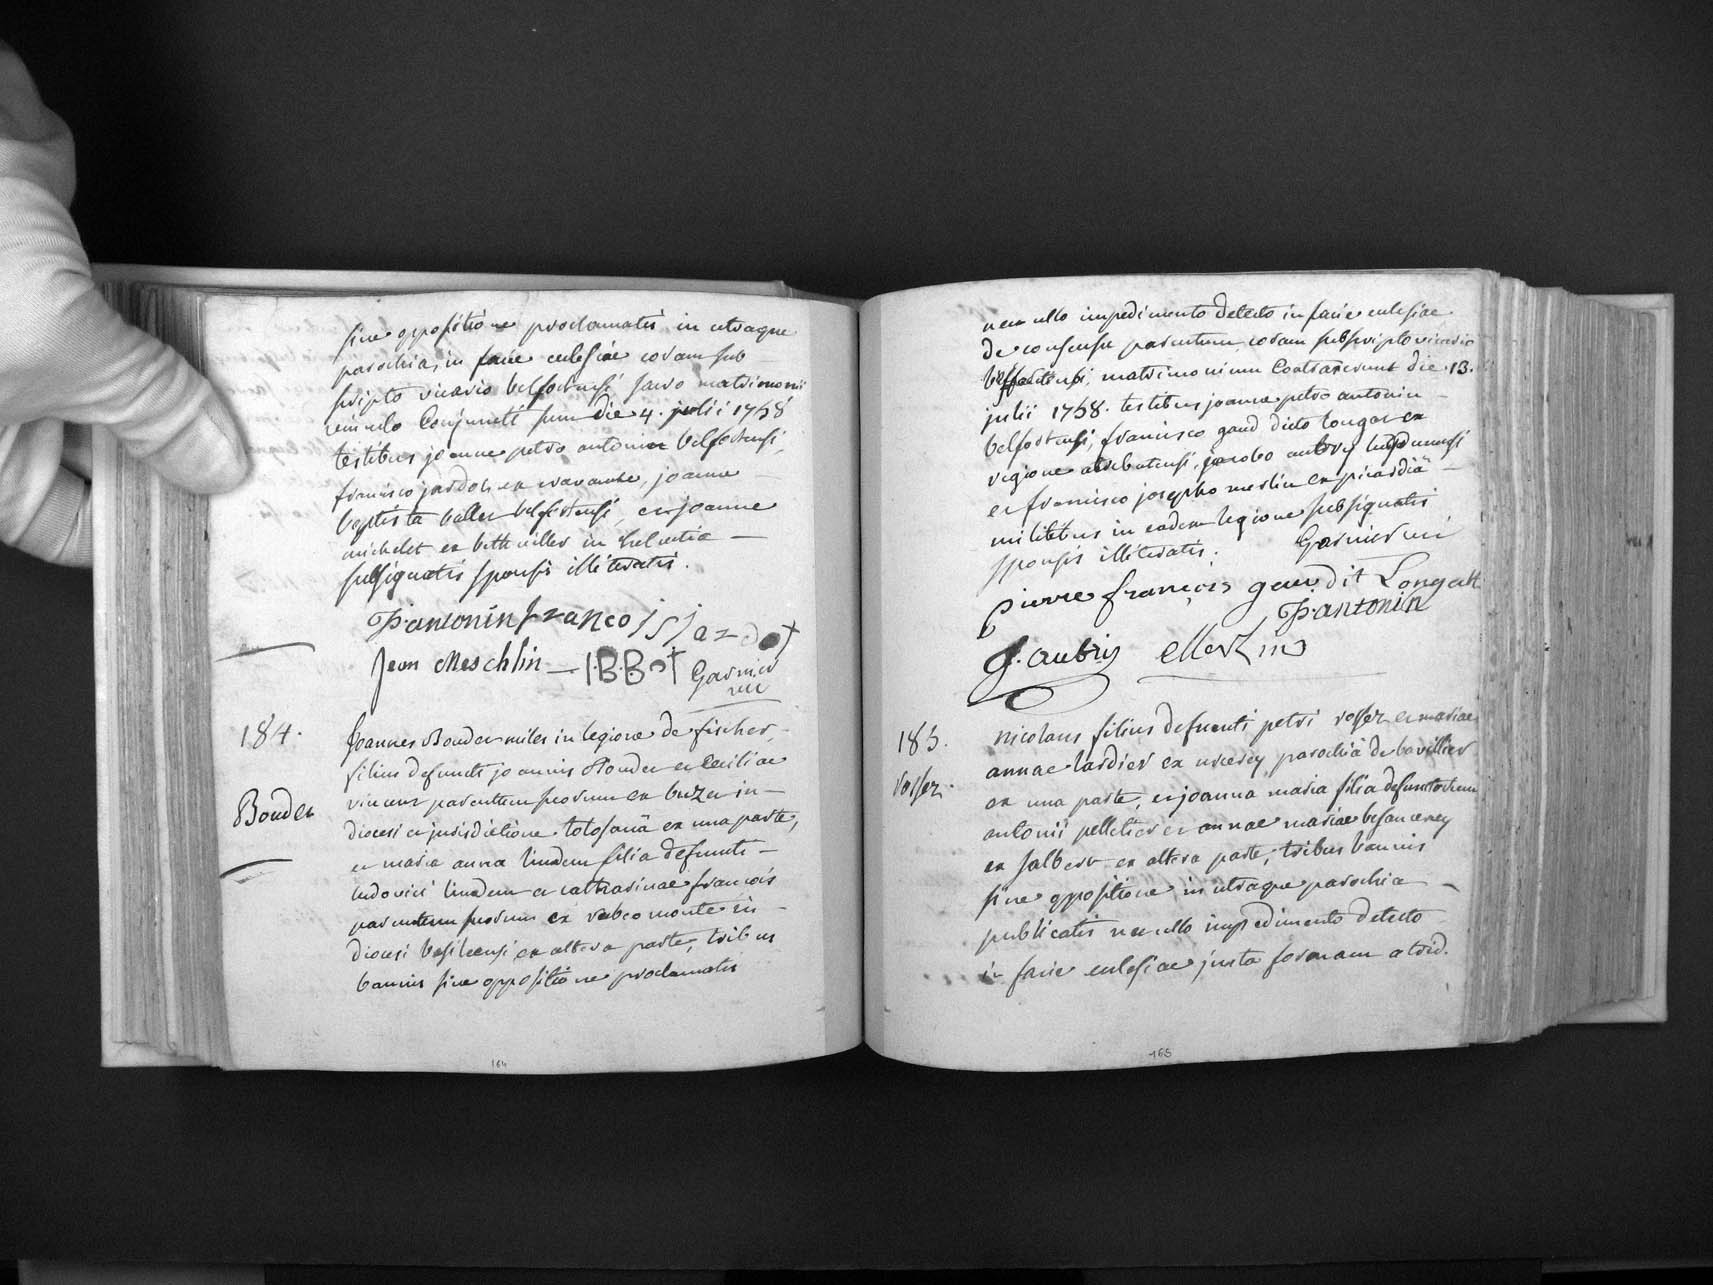 sine oppositione proclamatis in utraque
parochia, in facie eclesiae coram sub
scripto vicario belfortensi sacro matrimonii
vinculo Conjuncti sunt die 4. julii 1758
testibus joanne petro antonin belfortensi,
francisco jardot ex joanne
baptista ballet belfortensi, et joanne
michelet ex in helvetia
subsignatis sponsis illiteratis.
P. antonin franCois jardot
Jean Meschlin I.B.B.ot Garnier
vic
184.
Bouder
Joannes Bouder miles in legione de fischer,
filius defuncti joannis Bouder et Ceciliae
vincent parentum suorum ex buzet in
diocesi et jurisdictione tolosanâ ex una parte,
et maria anna linden filia defuncti
ludovici linden et catharinae francois
parentum suorum ex rubeo monte in
diocesi basileensi ex altera parte, tribus
bannis sine oppositione proclamatis
164
nec ullo impedimento detecto in facie eclesiae
de consensu parentum coram subscripto vicario
belfortensi, matrimonium Contraxerunt die 13.
julii 1758. testibus joanne petro antonin
belfortensi, francisco gaud dicto longat ex
regione atrebatensi, jacobo aubry lugdunensi
et francisco josepho merlin ex picardiâ
militibus in eadem legione subsignatis
sponsis illiteratis. Garnier vic
pierre françois gau dit Longatt
P. antonin
J. aubry Merlin
185.
vosser.
nicolaus filius defuncti petri vosser et mariae
annae tardier ex urcerey parochiâ de bavillier
ex una parte, et joanna maria filia defunctorum
antonii pelletier et annae mariae besanceney
ex salbert ex altera parte, tribus bannis
sine oppositione in utraque parochia
publicatis nec ullo impedimento detecto
in facie eclesiae juxta formam a trid.
165